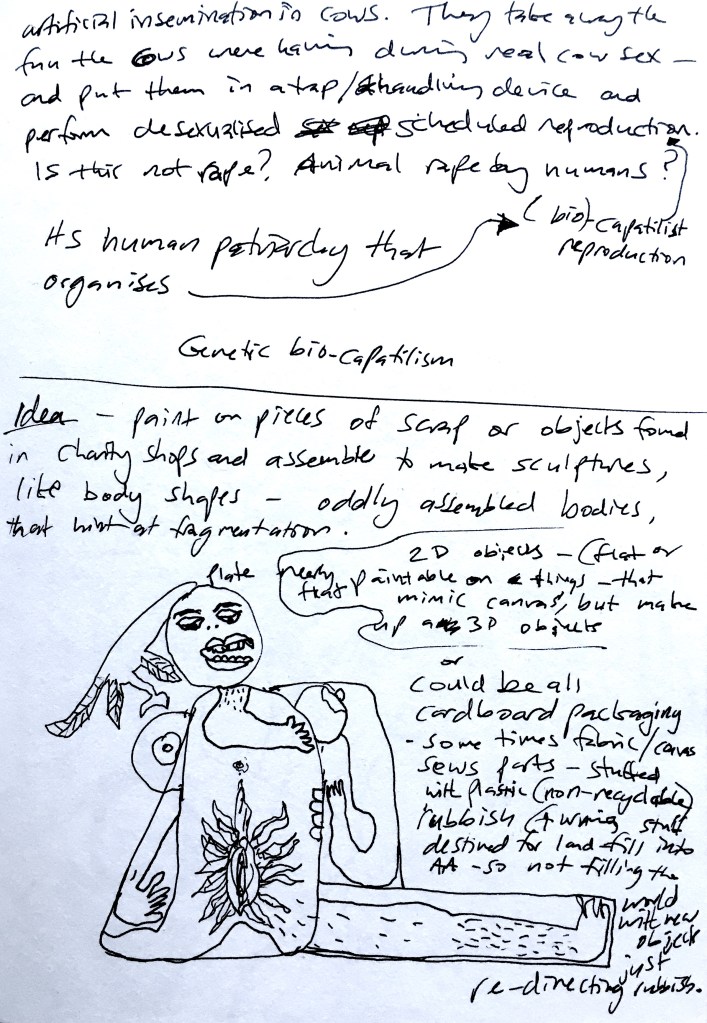 artificial insemination in cows. They take away the
fun the cows were having during real cow sex –
and put them in a trap/handling device and
perform desexualised scheduled reproduction.
Is this not rape? Animal rape by humans?
(bio)-capatilist
reproduction
Its human patriarchy that
organises
Genetic bio-capatilism
Idea – paint on pieces of scrap or objects found
in charity shops and assemble to make sculptures,
like body shapes – oddly assembled bodies,
that hint at fragmentation.
plate
2D objects – (flat or
nearly flat paintable on things – that
mimic canvas, but make
up 3D objects
or
could be all
cardboard packaging
- some times fabric/canvas
sewn parts – stuffed
with plastic (non-recyclable)
rubbish (turning stuff
destined for land-fill into
– so not filling the
world
with new
objects
just
re-directing rubbish.